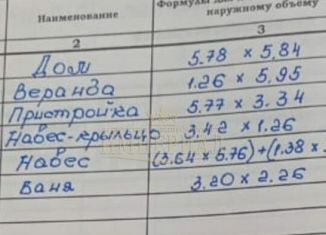 Наименование
Формулы
наружному объему
2
3
Дом 5.78 × 5.84
Веранда 1.26 × 5.95
Пристройка 5.77 × 3.34
Навес-крыльцо 3.42 × 1.26
Навес (3.64 × 5.76)+(1.38 ×
Баня 3.20 × 2.26